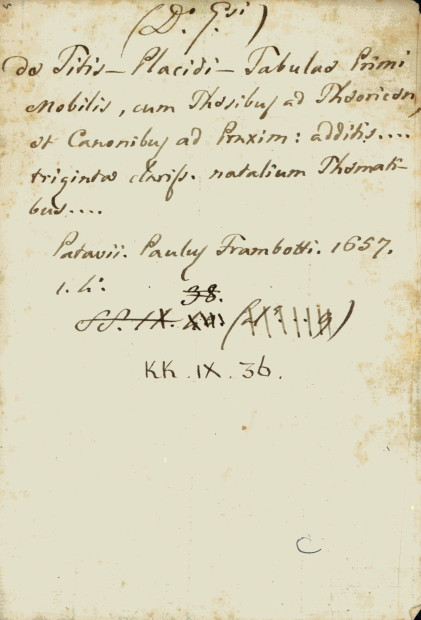 (D.º G.si)
de Titis — Placidi — Tabulae Primi
Mobilis, cum Thesibus ad Theoricen,
et Canonibus ad Praxim: additis....
triginta clariss. natalium Themati-
bus....
Patavii. Paulus Frambotti. 1657.
1. h.º
38.
SS. IX.
KK. IX. 36.
C